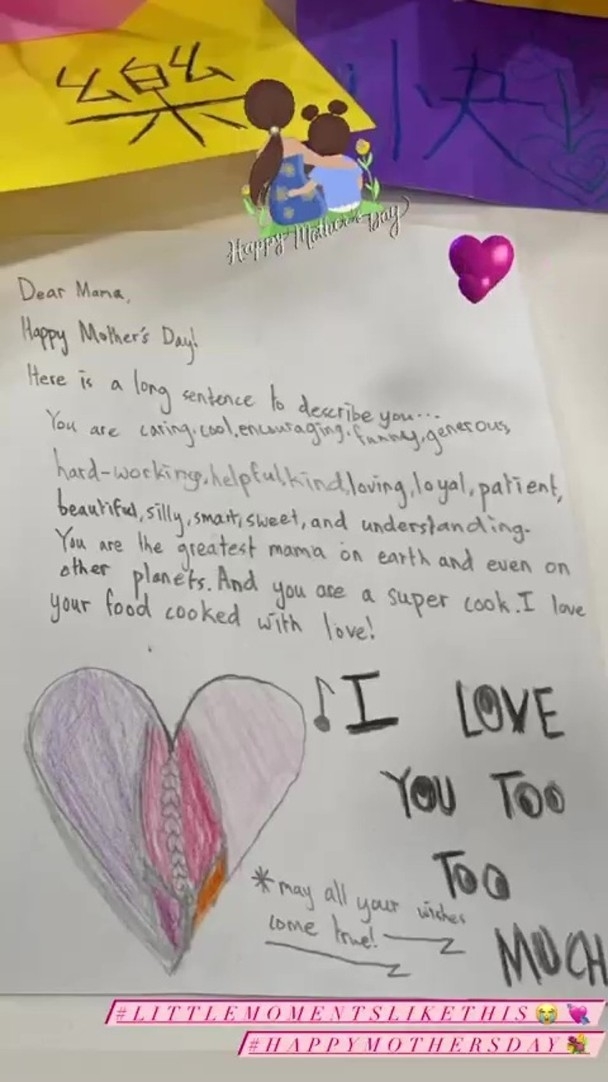 樂 快
Happy Mother's Day
Dear Mama,
Happy Mother's Day!
Here is a long sentence to describe you...
You are caring, cool, encouraging, funny, generous,
hard-working, helpful, kind, loving, loyal, patient,
beautiful, silly, smart, sweet, and understanding.
You are the greatest mama on earth and even on
other planets. And you are a super cook. I love
your food cooked with love!
♪I LOVE
YOU TOO
TOO
MUCH
*may all your wishes
come true!
#LITTLEMOMENTSLIKETHIS😭💘
#HAPPYMOTHERSDAY💐